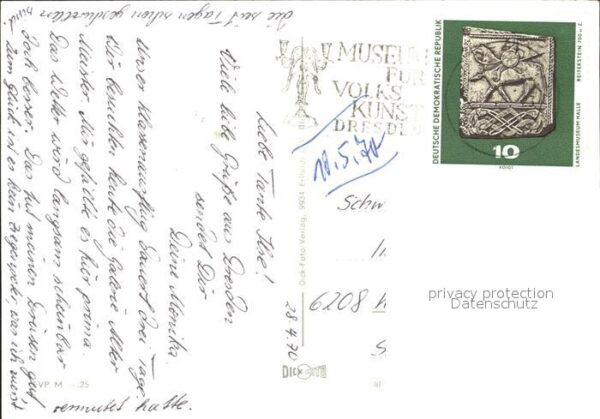 Liebe Tante Ilse!
Viele liebe Grüße aus Dresden
sendet Dir
Deine Monika
Unser Klassenausflug dauert drei Tage.
Wir besuchten heute die Galerie Alter
Meister. Mir gefällt es hier prima.
Das Wetter wird langsam scheinbar
doch besser. Das tut meinen Drüsen gut,
die seit Tagen schon geschwollen
sind. Zum Glück ist es kein Ziegenpeter, was ich erst
vermutet hatte.
28.4.70
MUSEUM
FÜR
VOLKS
KUNST
DRESDEN
DEUTSCHE DEMOKRATISCHE REPUBLIK
REITERSTEIN 700 u. Z.
LANDESMUSEUM HALLE
10
VOIGT
11.5.70
Dick-Foto-Verlag, 9934 Erlbach
DICK FOTO
6208
EVP M -.25
privacy protection
Datenschutz